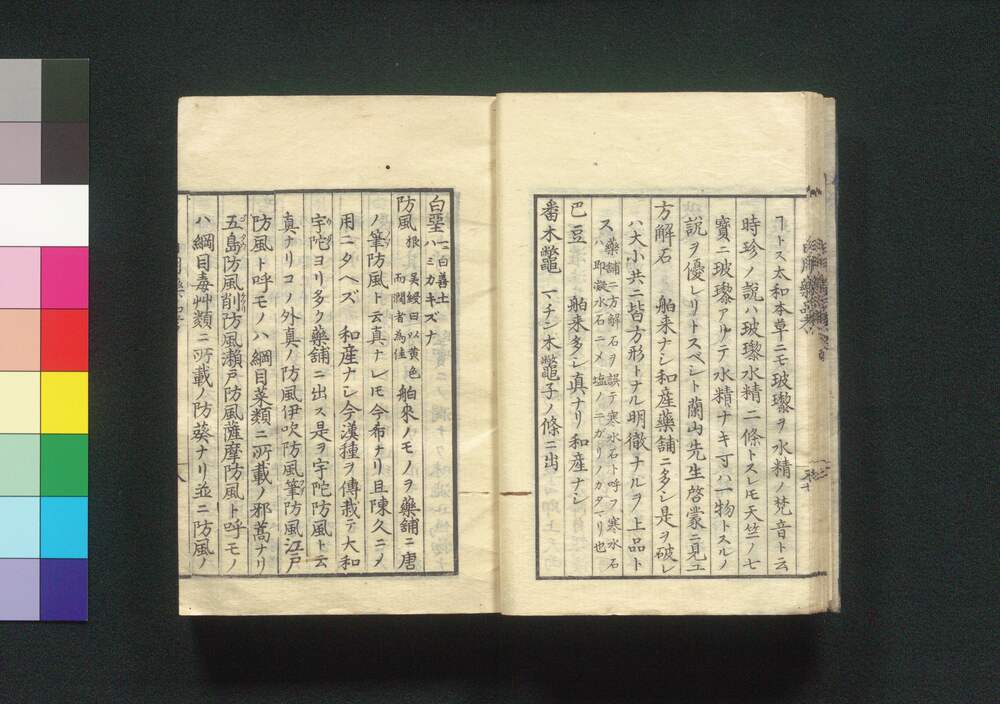 ヿトス太和本草ニモ玻瓈ヲ水精ノ梵音ト云
時珍ノ説ハ玻瓈水精二條トスレモ天竺ノ七
寳ニ玻瓈アリテ水精ナキヿハ一物トスルノ
説ヲ優レリトスベシト蘭山先生啓蒙ニ見エ
方解石 舶来ナシ和産藥舗ニ多シ是ヲ破レ
ハ大小共ニ皆方形トナル明徹ナルヲ上品ト
ス 藥舗ニ方解石ヲ誤テ寒水石ト呼フ寒水石
ハ即凝水石ニメ塩ノニガリノカタマリ也
巴豆 舶来多シ真ナリ和産ナシ
番木鼈 マチン木鼈子ノ條ニ出
白堊 一ニ白善土
ハミカキズナ
防風 根 吴綬曰以黄色
而潤者為佳 舶來ノモノヲ藥舗ニ唐
ノ筆防風ト云真ナレモ今希ナリ且陳久ニメ
用ニタヘズ 和産ナシ今漢種ヲ傳栽テ大和
宇陀ヨリ多ク藥舗ニ出ス是ヲ宇陀防風ト云
真ナリコノ外真ノ防風伊吹防風筆防風江戸
防風ト呼モノハ綱目菜類ニ所載ノ邪蒿ナリ
五島防風削防風瀬戸防風薩摩防風ト呼モノ
ハ綱目毒艸類ニ所載ノ防葵ナリ並ニ防風ノ